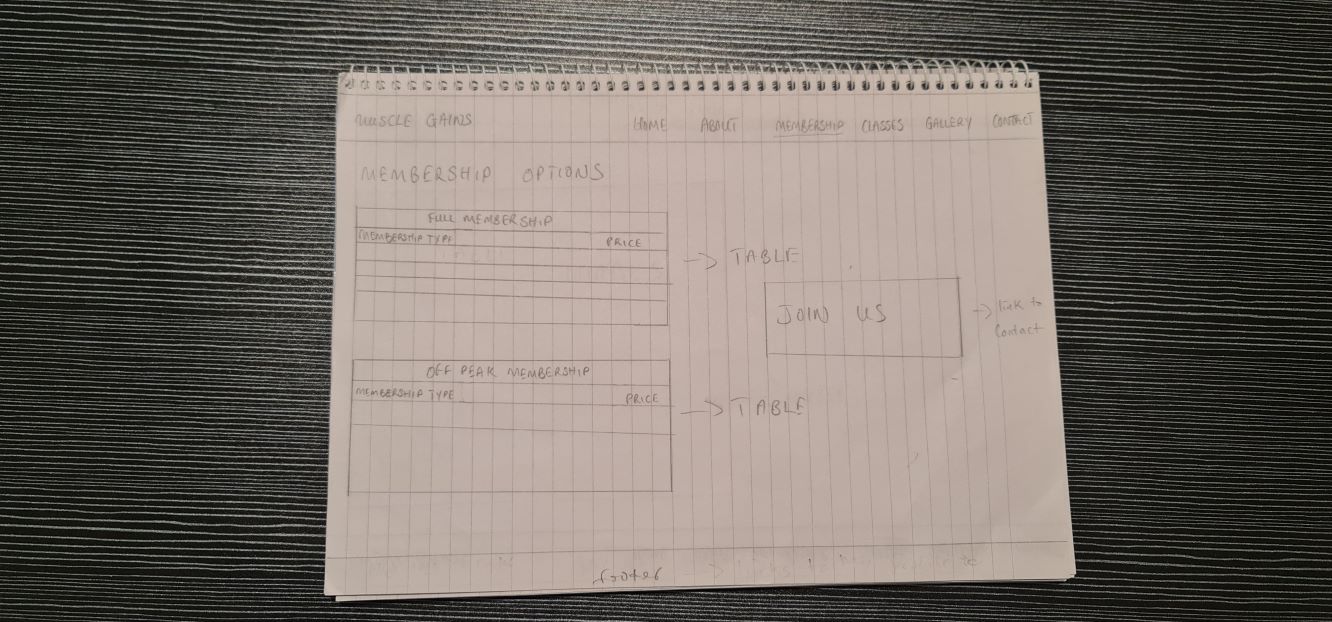 MUSCLE GAINS HOME ABOUT MEMBERSHIP CLASSES GALLERY CONTACT
MEMBERSHIP OPTIONS
FULL MEMBERSHIP
MEMBERSHIP TYPE PRICE
→ TABLE
JOIN US
→ link to
Contact
OFF PEAK MEMBERSHIP
MEMBERSHIP TYPE PRICE
→ TABLE
footer